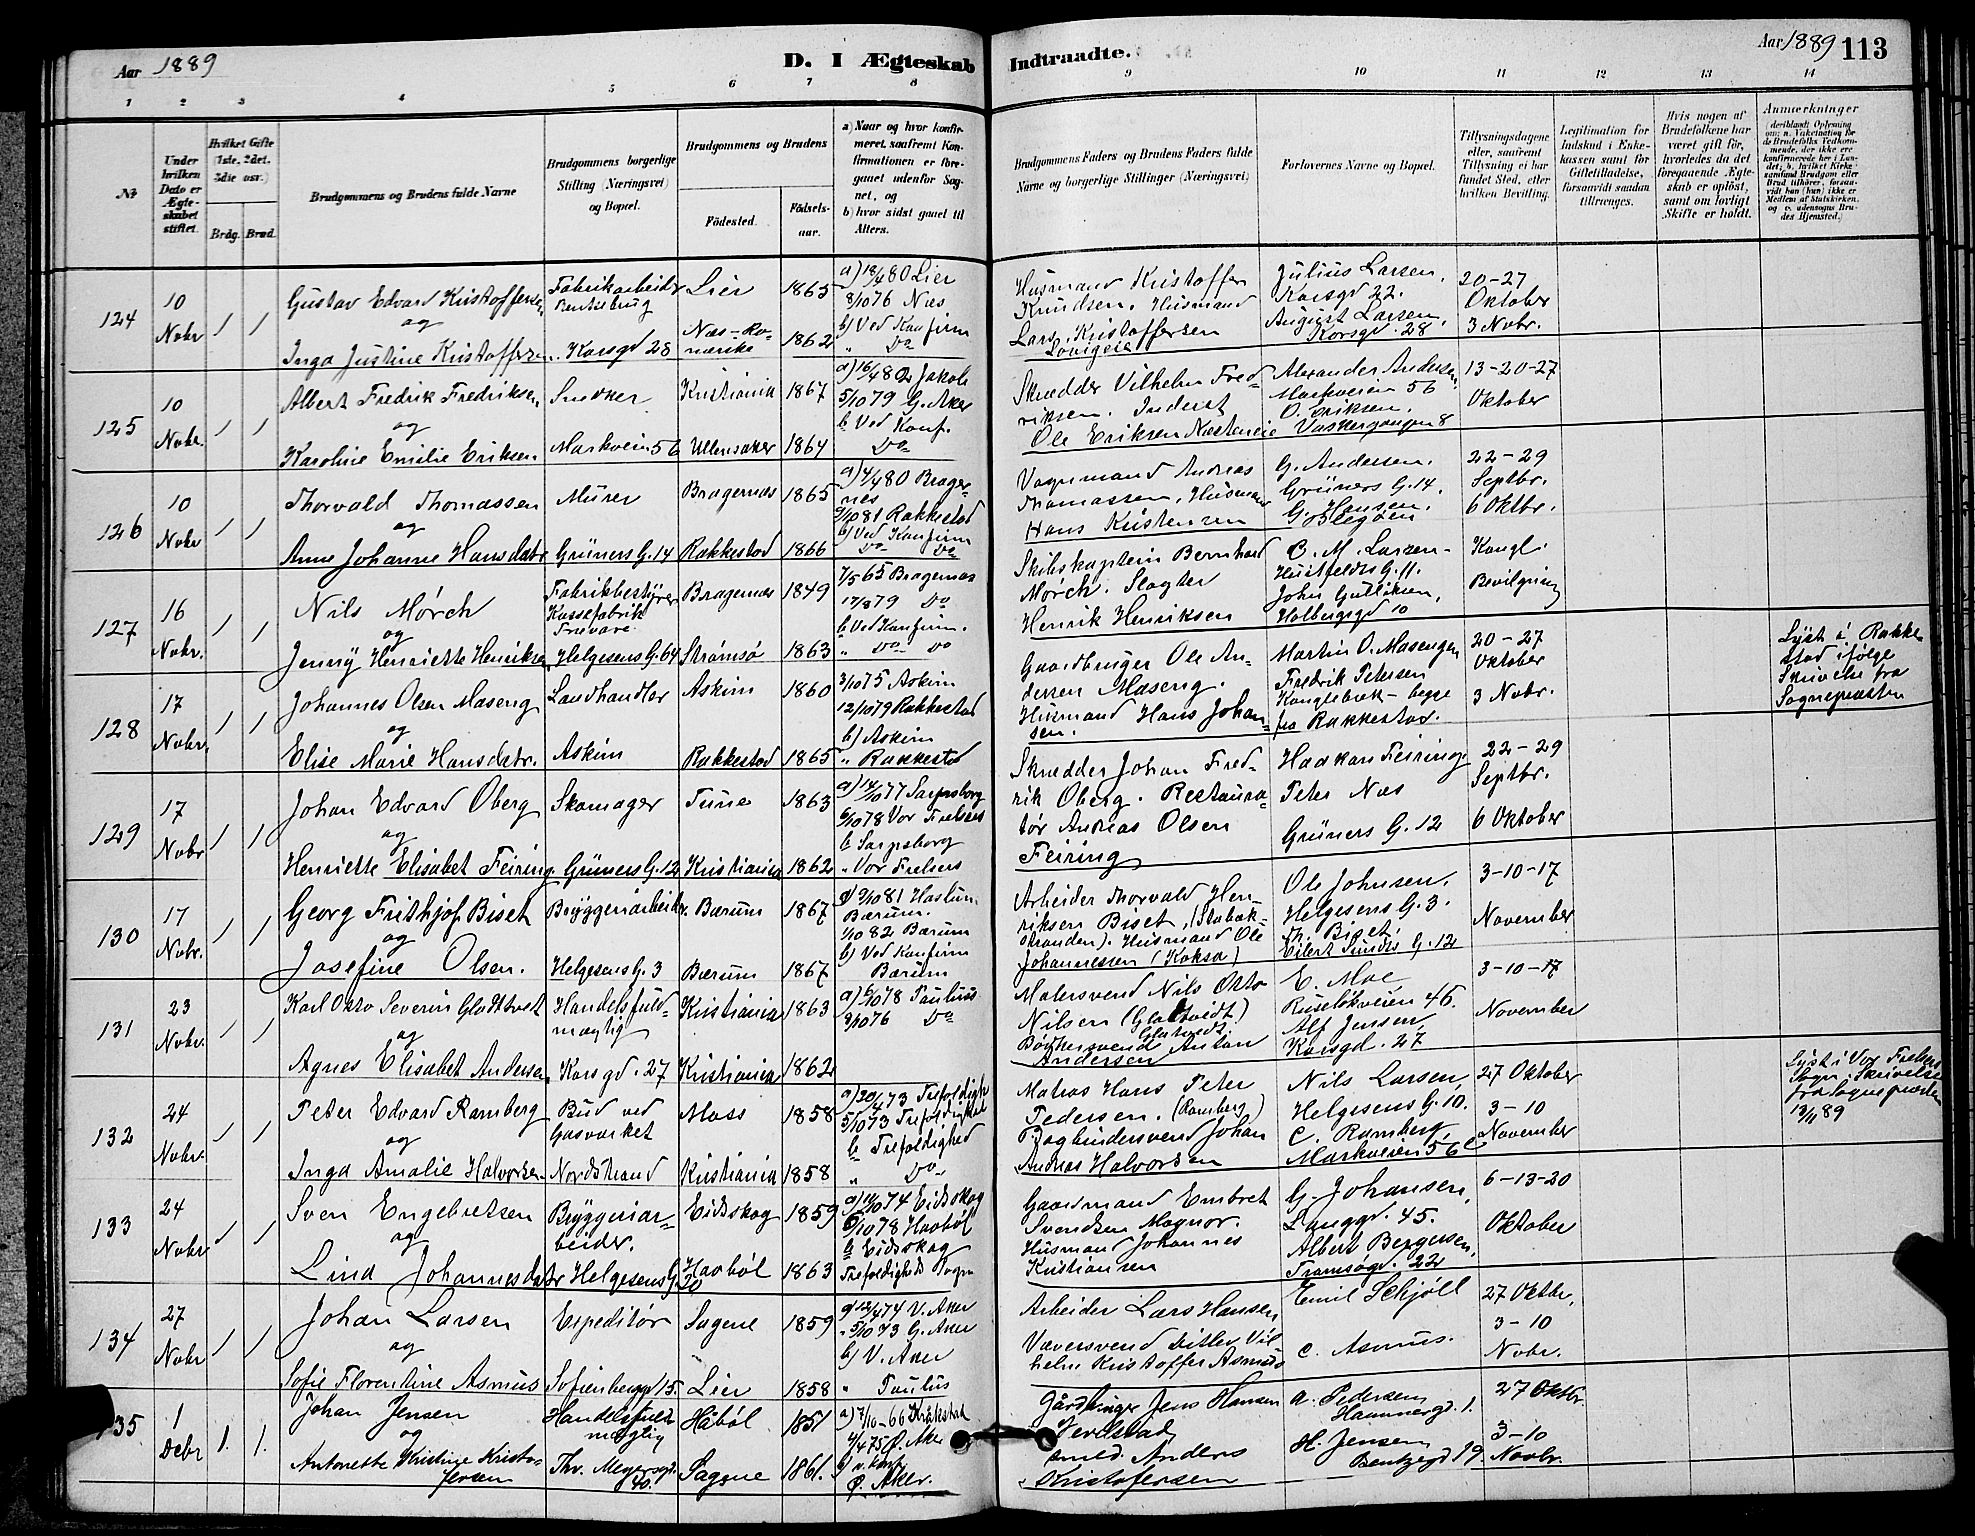 Aar 1889
D. I Ægteskab Indtraadte.
Aar 1889 113
1 2 3 4 5 6 7 8 9 10 11 12 13 14
№
Under hvilken Dato er Ægteskabet stiftet.
Hvilket Gifte (1ste, 2det, 3die osv.)
Brdg. Brud.
Brudgommens og Brudens fulde Navne
Brudgommens borgerlige Stilling (Næringsvei) og Bopæl.
Brudgommens og Brudens
Födested. Födselsaar.
a) Naar og hvor konfirmeret, saafremt Konfirmationen er foregaaet udenfor Sognet, og
b) hvor sidst gaaet til Alters.
Brudgommens Faders og Brudens Faders fulde Navne og borgerlige Stillinger (Næringsvei)
Forlovernes Navne og Bopæl.
Tillysningsdagene eller, saafremt Tillysning ei har fundet Sted, efter hvilken Bevilling.
Legitimation for Indskud i Enkekassen samt for Giftetilladelse, forsaavidt saadan tiltrænges.
Hvis nogen af Brudefolkene har været gift för, hvorledes da det foregaaende Ægteskab er oplöst, samt om lovligt Skifte er holdt.
Anmærkninger
124 10 Nobr 1 1
Gustav Edvard Kristoffersen
og
Inga Justine Kristoffersen
Fabrikarbeider
Korsgd 28
Lier 1865
Næs-Romerike 1862
a) 18/4 80 Lier
8/10 76 Næs
b) Ved Konfirm
" Do
Husmand Kristoffer
Knudsen. Husmand
Lars Kristoffersen
Julius Larsen.
Korsgd 22.
August Larsen.
Korsgd. 28
20-27
Oktober
3 Nobr.
125 10 Nobr. 1 1
Albert Fredrik Fredriksen
og
Karoline Emilie Eriksen
Snedker
Markveien 56
Kristiania 1867
Ullensaker 1864
5/10 79 G. Aker
b Ved Konf.
Do
Skrædder Vilhelm Fred-
riksen. Inderst
Ole Eriksen Næsteneie
Alexander Andersen
Markveien 56
O. Eriksen.
13-20-27
Oktober
126 10 Nobr 1 1
Thorvald Thomassen
og
Anne Johanne Hansdatr
Murer
Grüners G. 14
Bragernæs 1865
Rakkestad 1866
a) 4/4 80 Brager-
næs
9/10 81 Rakkestad
b) Ved Konfirm
Do Do
Vognmand Andreas
Thomassen. Husmand
Hans Kristensen
G. Andersen.
Grüners G. 14.
G. Hansen.
22-29
Septbr.
6 Oktbr.
127 16 Nobr. 1 1
Nils Mørch
og
Jenny Henriette Henriksen
Fabrikbestyrer
Kassefabrik
Trevare
Helgesens G. 64
Bragernæs 1849
Strømsø 1863
7/5 65 Bragernæs
17/8 79 Do
b Ved Konfirm.
" Do Do
Skibskaptein Bernhard
Mørch. Slagter
Henrik Henriksen
O. M. Larsen-
Huitfeldts G. 11.
John Gulliksen,
Holbergsgd 10
Kongl.
Bevilgning
128 17 Nobr. 1 1
Johannes Olsen Maseng
og
Elise Marie Hansdatr.
Landhandler
Askim
Askim 1860
Rakkestad 1865
3/10 75 Askim
12/10 79 Rakkestad
b) Askim
" Rakkestad
Gaardbruger Ole An-
dersen Maseng.
Husmand Hans Johan-
sen.
Martin O. Masengen
Fredrik Petersen
Kanglebæk - begge
fra Rakkestad.
20-27
Oktober
3 Nobr.
Lyst i Rakke-
stad ifølge
Skrivelse fra
Sognepresten
129 17 Nobr 1 1
Johan Edvard Oberg
og
Henriette Elisabet Feiring.
Skomager
Grüners G. 12
Tune 1863
Kristiania 1862
a) 14/10 77 Sarpsborg
6/10 78 Vor Frelsers
b Sarpsborg
" Vor Frelsers
Skrædder Johan Fred-
rik Oberg. Restaura-
tør Andreas Olsen
Feiring
Haakon Feiring.
Peter Næs
Grüners G. 12
22-29
Septbr.
6 Oktober
130 17 Nobr. 1 1
Georg Frithjof Biset
og
Josefine Olsen.
Bryggeriarbeider
Helgesens G. 3
Bærum 1867
Bærum 1867
a) 9/10 81 Haslum
Bærum.
1/10 82 Bærum
b) Ved Konfirm
Bærum
Arbeider Thorvald Hen-
riksen Biset, (Stabæk-
stranden). Husmand Ole
Johannessen (Koksa)
Ole Johnsen.
Helgesens G. 3.
Th. Biset,
Eilert Sundts G. 12
3-10-17
November
131 23 Nobr. 1 1
Karl Otto Severin Glatvedt
og
Agnes Elisabet Andersen
Handelsfuld-
mægtig
Korsgd. 27
Kristiania 1863
Kristiania 1862
a) 6/10 78 Paulus
8/10 76 Do
Malersvend Nils Otto
Nilsen (Glatvedt)
Glatvedt.
Bødkersvend Anton
Andersen
E. Moe
Ruseløkveien 46.
Alf Jensen,
Korsgd. 27
3-10-17
November
132 24 Nobr. 1 1
Peter Edvard Ramberg
og
Inga Amalie Halvorsen.
Bud ved
Gasværket
Nordstrand
Moss 1858
Kristiania 1858
a) 20/4 73 Trefoldigh
5/10 73 Trefoldighed
b Trefoldighed
" Do
Matros Hans Peter
Pedersen. (Ramberg)
Bogbindersvend Johan
Andreas Halvorsen
Nils Larsen,
Helgesens G. 10.
C. Ramberg,
Markveien 56 C
27 Oktober
3-10
November
Lyst i Vor Frelsers
Sogn. Skrivelse
fra Sognepresten
13/11 89
133 24 Nobr. 1 1
Sven Engebretsen
og
Lina Johannesdatr
Bryggeriar-
beider.
Helgesens G. 10
Eidsskog 1859
Haabøl 1863
a) 11/10 74 Eidsskog
6/10 78 Haabøl
b Eidsskog
Trefoldigheds Sogn
Gaardmand Embret
Svendsen Magnor.
Husmand Johannes
Kristiansen
G. Johansen,
Langgd. 45.
Albert Bergersen,
Tromsøgd. 22
6-13-20
Oktober
134 27 Nobr 1 1
Johan Larsen
og
Sofie Florentine Asmus
Expeditør
Sofienbergd 15.
Sagene 1859
Lier 1858
a) 12/4 74 V. Aker
" 5/10 73 G. Aker
b) V. Aker
" Paulus
Arbeider Lars Hansen
Væversvend Ditlev Vil-
helm Kristoffer Asmus
Emil Schjøll
C. Asmus.
27 Oktbr.
3-10
Nobr.
135 1 Debr 1. 1.
Johan Jensen
og
Antonette Kristine Kristo-
fersen
Handelsfuld-
mægtig
Thv. Meyersgd.
Håbøl 1851
Sagene 1861.
a) 7/10-66 Kråkstad
4/4 75 Ø. Aker
b) v. Konf.
Ø. Aker.
Jens Hansen
Anders
Kristofersen
A. Pedersen
Hammergd. 1.
H. Jensen
Bentzegd 19.
27 Oktbr.
3-10
Novbr.